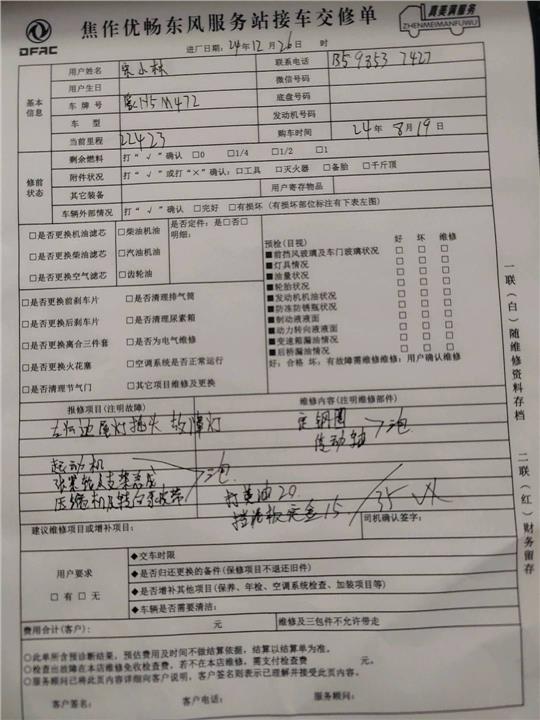 DFAC
焦作优畅东风服务站接车交修单
真美满服务
ZHENMEIMANFUWU
进厂日期: 24年12月26日 时
基本信息
用户姓名
联系电话
用户生日
微信号码
车 牌 号 豫H5M472
底盘号码
车 型
发动机号码
当前里程 22423
购车时间 24年8月19日
修前状态
剩余燃料 打“√”确认 □0 □1/4 □1/2 □1
附件状况 打“√”或打“×”确认: □工具 □灭火器 □备胎 □千斤顶
其它装备
用户寄存物品
车辆外部情况 打“√”确认 □完好 □有损坏 (有损坏部位标注有下表左图)
□是否更换机油滤芯 □柴油机油 是否定件: 是□否□
□是否更换柴油滤芯 □汽油机油 明细:
□是否更换空气滤芯 □齿轮油
□是否更换前刹车片 □是否清理排气筒
□是否更换后刹车片 □是否清理尿素箱
□是否更换离合三件套 □是否为电气维修
□是否更换火花塞 □空调系统是否正常运行
□是否清理节气门 □其它项目维修及更换
预检(目视) 好 坏 维修
■前挡风玻璃及车门玻璃状况 □ □ □
■灯具情况 □ □ □
■油量状况 □ □ □
■轮胎状况 □ □ □
■发动机机油状况 □ □ □
■防冻防锈瓶状况 □ □ □
■制动液液面 □ □ □
■动力转向液液面 □ □ □
■变速箱漏油情况 □ □ □
■后桥漏油情况 □ □ □
好: 合格 坏: 有故障需维修维修: 用户确认维修
报修项目(注明故障)
维修内容(注明维修部件)
左后边尾灯插头 故障灯
传动轴
起动机
打黄油20
15
35
建议维修项目或增补项目:
司机确认签字:
用户要求
□有 □无
◆交车时限
◆是否归还更换的备件(保修项目不退还旧件)
◆是否增补其他项目(保养、年检、空调系统检查、加装项目等)
◆车辆是否需要清洁:
费用合计(客户): 元
维修及三包件不允许带走
○此单所含预诊断结果, 预估费用及时间不做结算依据, 结算以结算单为准。
○检查出故障在本店维修免收检查费, 若不在本店维修, 需支付检查费 元。
○服务顾问已将此页内容详细向客户说明, 客户签名则表示已理解并接受此页内容。
客户签名: 客户电话: 服务顾问:
一联(白)随维修资料存档
二联(红)财务留存